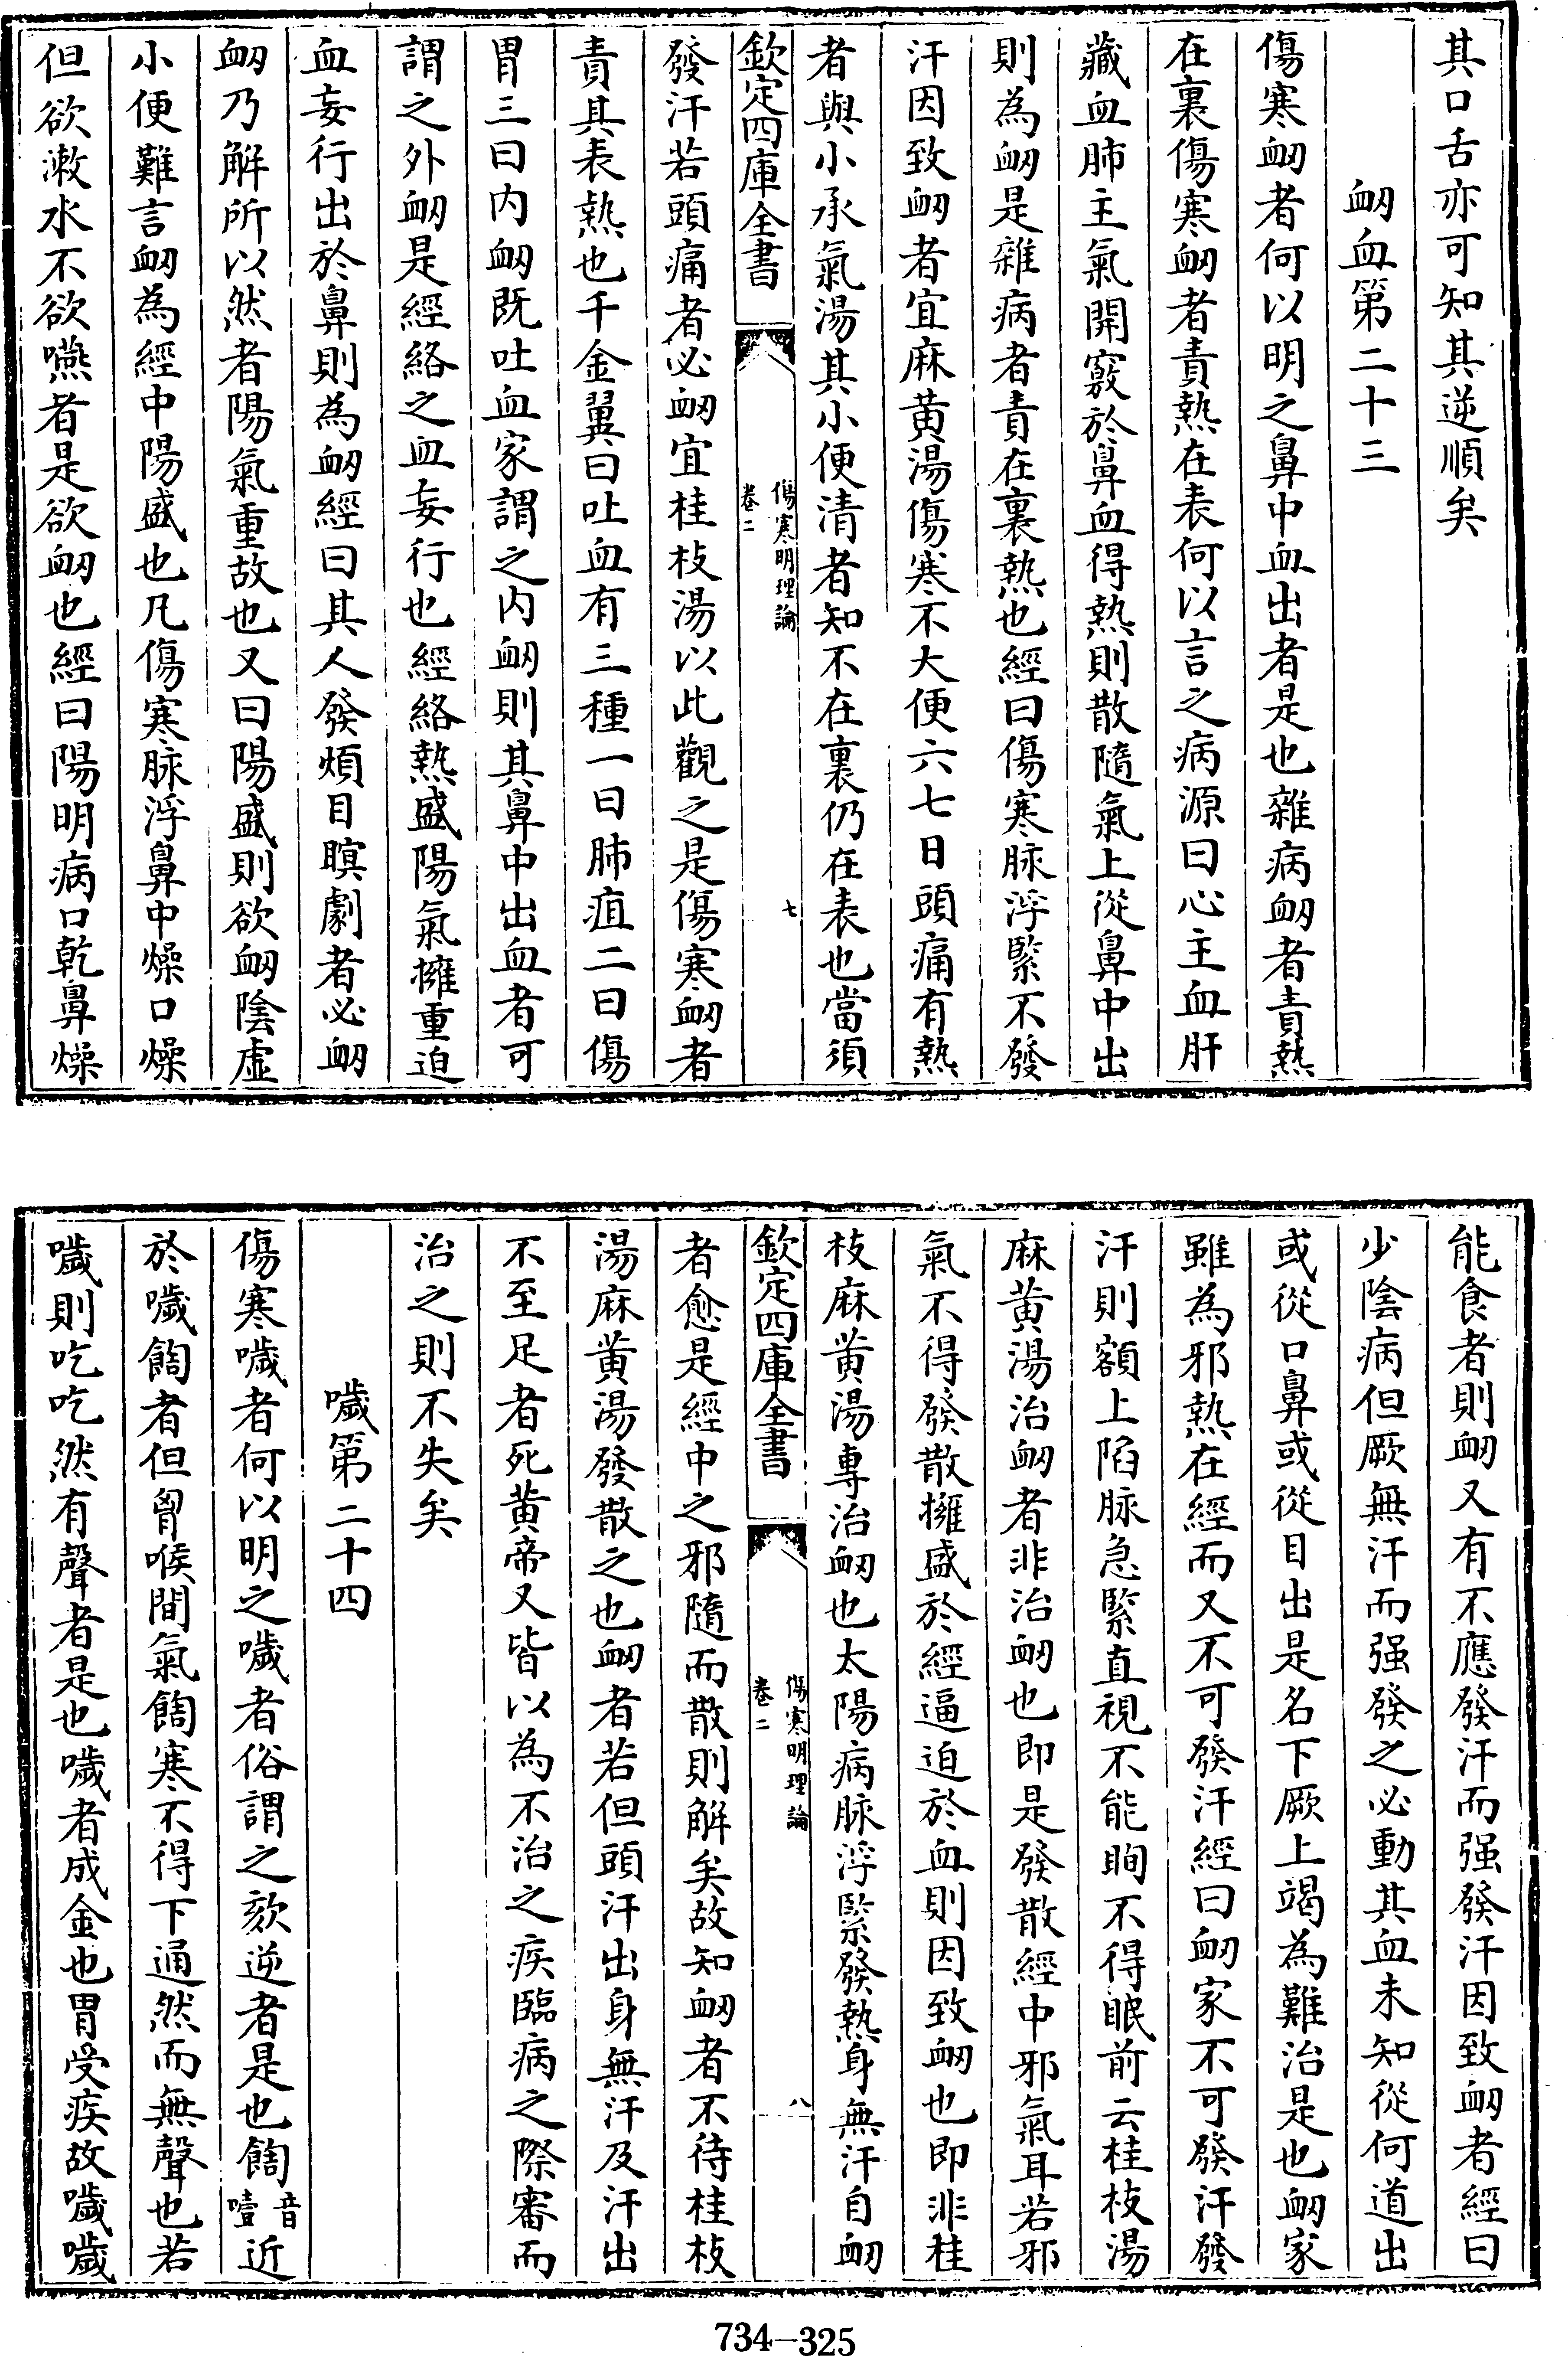 其口舌亦可知其逆順矣
衂血第二十三
傷寒衂者何以明之鼻中血出者是也雜病衂者責熱
在裏傷寒衂者責熱在表何以言之病源曰心主血肝
藏血肺主氣開竅於鼻血得熱則散隨氣上從鼻中出
則為衂是雜病者責在裏熱也經曰傷寒脉浮緊不發
汗因致衂者宜麻黄湯傷寒不大便六七日頭痛有熱
者與小承氣湯其小便清者知不在裏仍在表也當須
欽定四庫全書
傷寒明理論
卷二
七
發汗若頭痛者必衂宜桂枝湯以此觀之是傷寒衂者
責其表熱也千金翼曰吐血有三種一曰肺疽二曰傷
胃三曰内衂既吐血家謂之内衂則其鼻中出血者可
謂之外衂是經絡之血妄行也經絡熱盛陽氣擁重迫
血妄行出於鼻則為衂經曰其人發煩目瞑劇者必衂
衂乃解所以然者陽氣重故也又曰陽盛則欲衂陰虚
小便難言衂為經中陽盛也凡傷寒脉浮鼻中燥口燥
但欲漱水不欲嚥者是欲衂也經曰陽明病口乾鼻燥
能食者則衂又有不應發汗而强發汗因致衂者經曰
少陰病但厥無汗而强發之必動其血未知從何道出
或從口鼻或從目出是名下厥上竭為難治是也衂家
雖為邪熱在經而又不可發汗經曰衂家不可發汗發
汗則額上陷脉急緊直視不能眴不得眠前云桂枝湯
麻黄湯治衂者非治衂也即是發散經中邪氣耳若邪
氣不得發散擁盛於經逼迫於血則因致衂也即非桂
枝麻黄湯專治衂也太陽病脉浮緊發熱身無汗自衂
欽定四庫全書
傷寒明理論
卷二
八
者愈是經中之邪隨而散則解矣故知衂者不待桂枝
湯麻黄湯發散之也衂者若但頭汗出身無汗及汗出
不至足者死黄帝又皆以為不治之疾臨病之際審而
治之則不失矣
噦第二十四
傷寒噦者何以明之噦者俗謂之欬逆者是也䭇音噎近
於噦䭇者但胷喉間氣䭇寒不得下通然而無聲也若
噦則吃吃然有聲者是也噦者成金也胃受疾故噦噦
734-325